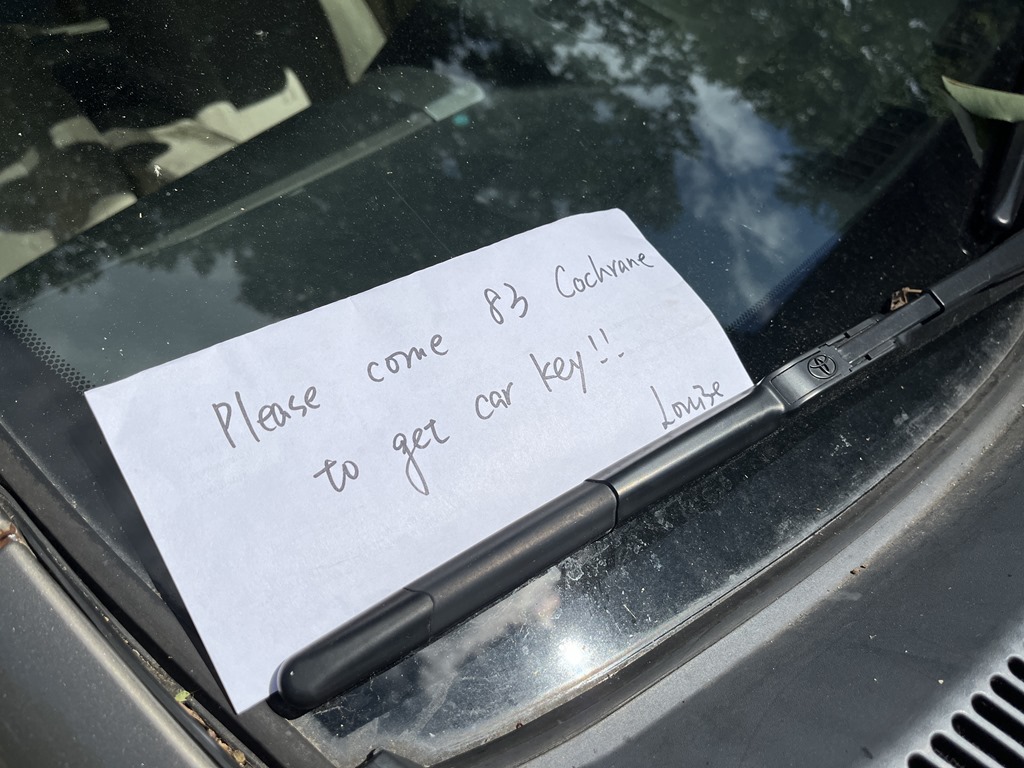 Please come 83 Cochrane
to get car key!!!
Louise